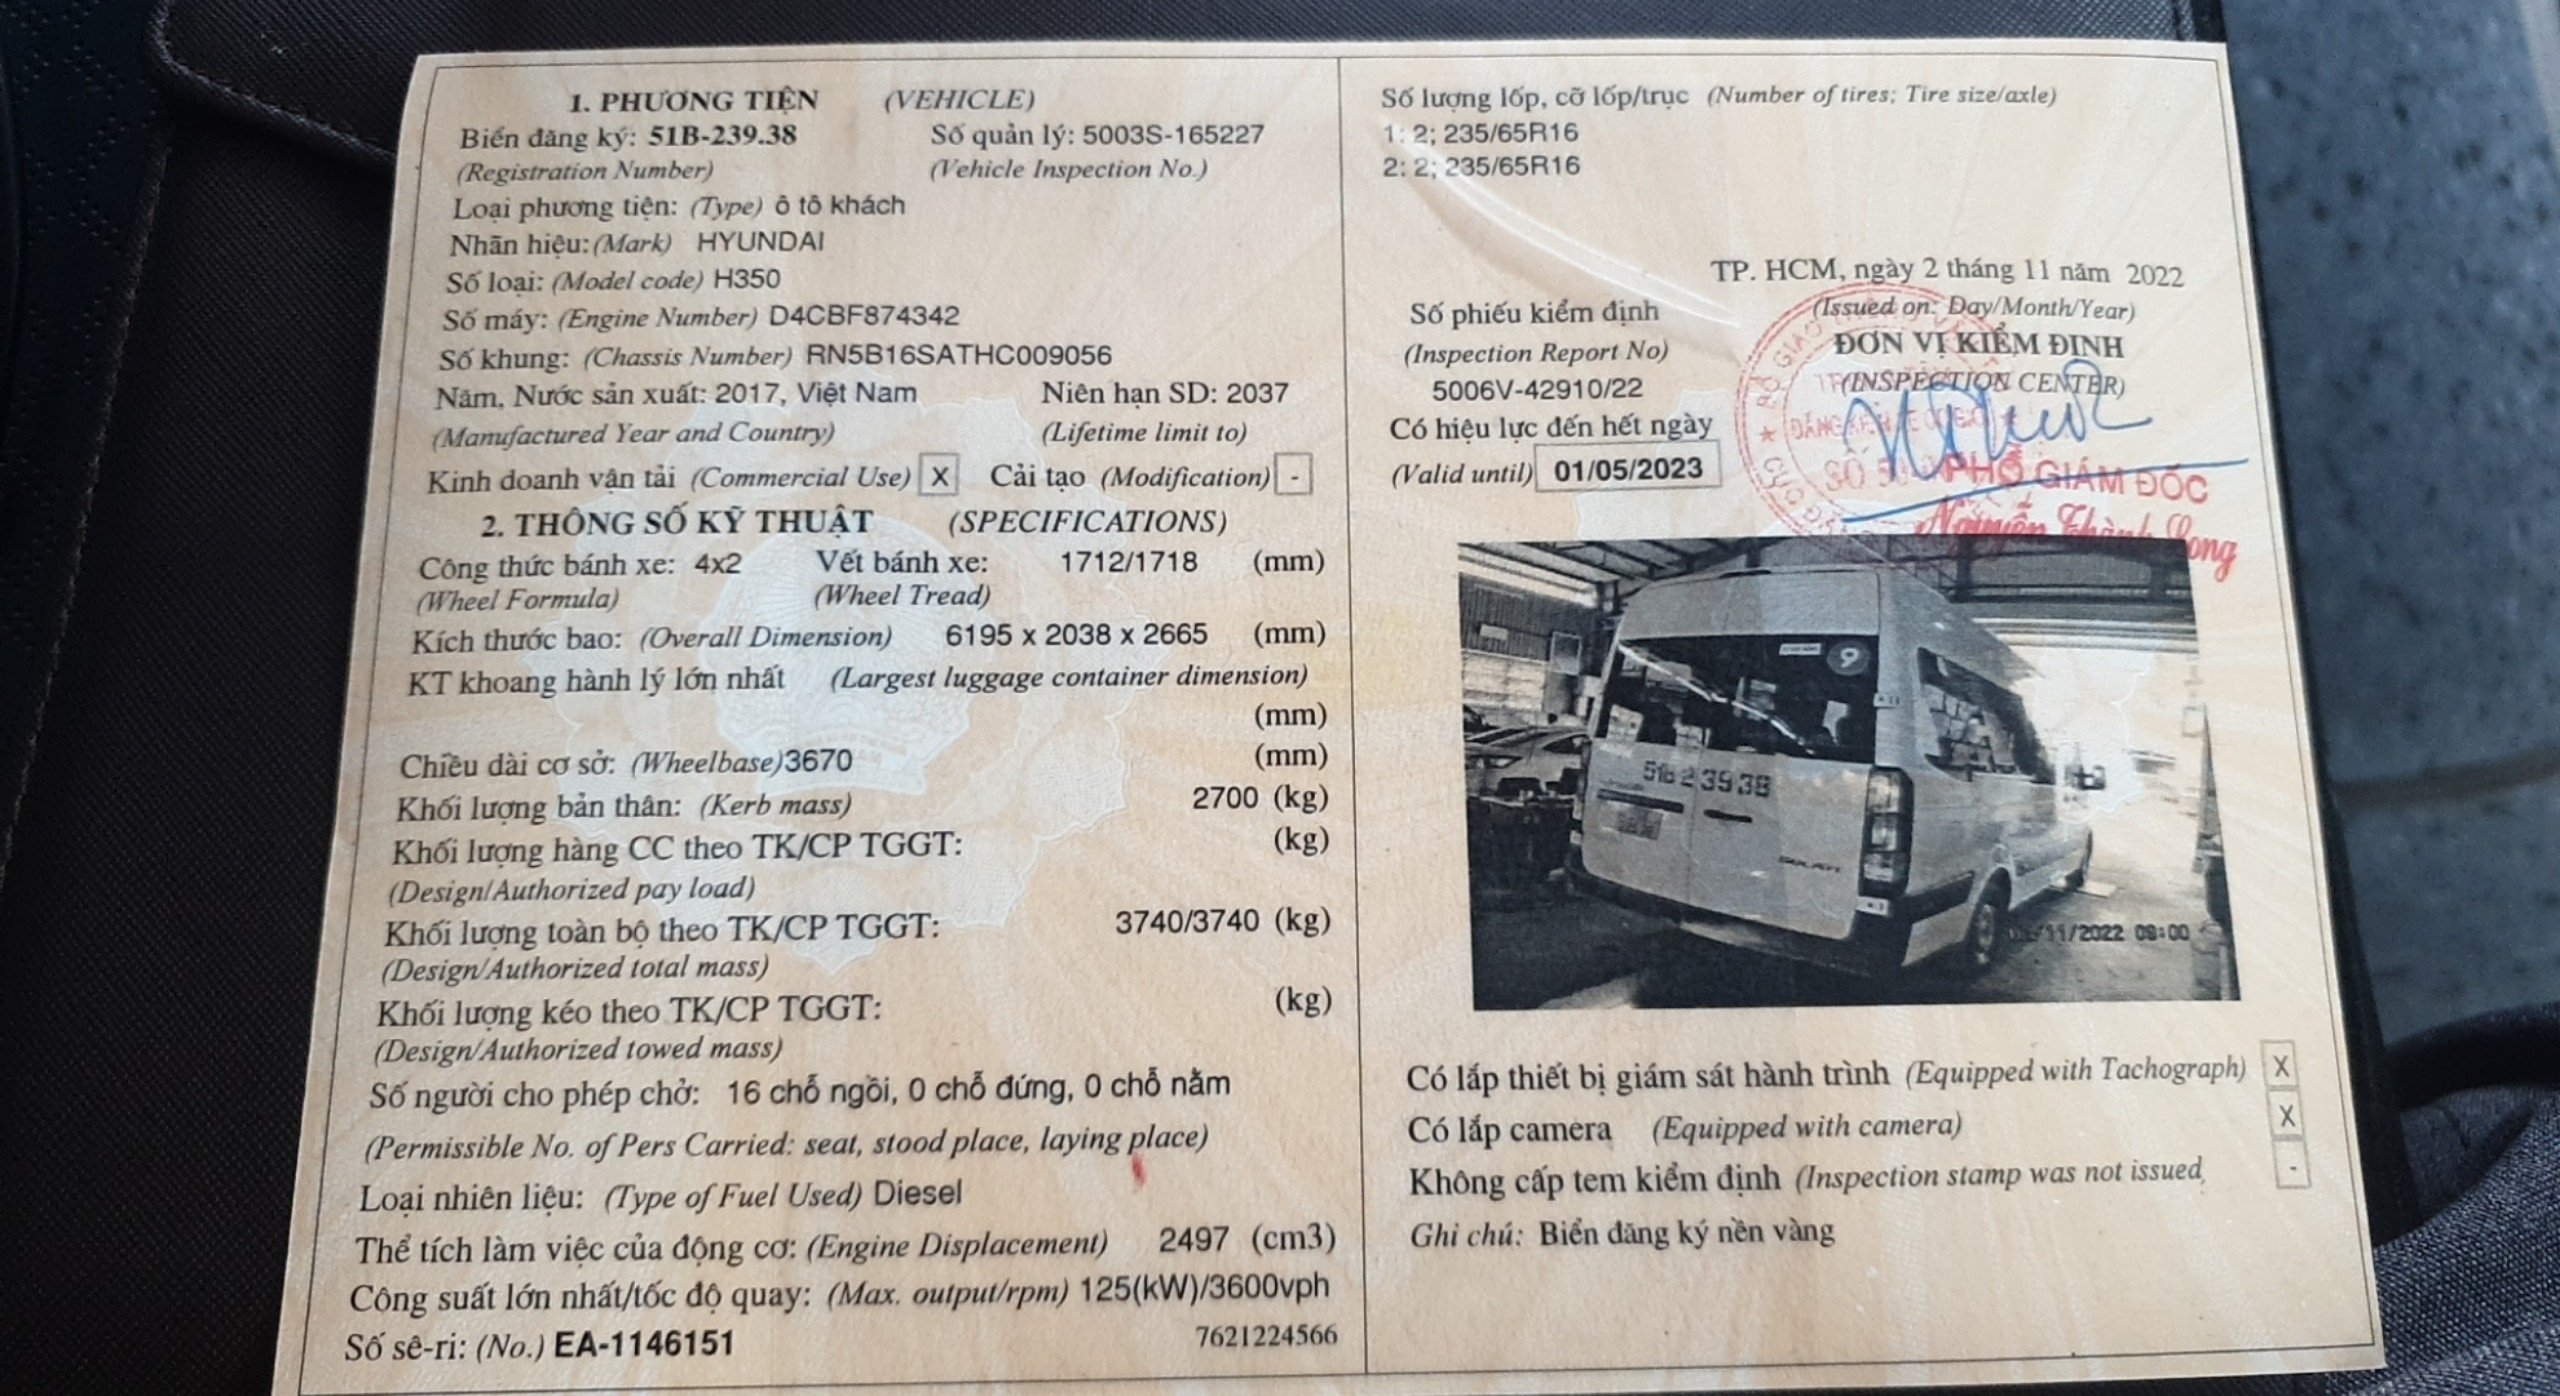 1. PHƯƠNG TIỆN (VEHICLE)
Biển đăng ký: 51B-239.38 Số quản lý: 5003S-165227
(Registration Number) (Vehicle Inspection No.)
Loại phương tiện: (Type) ô tô khách
Nhãn hiệu: (Mark) HYUNDAI
Số loại: (Model code) H350
Số máy: (Engine Number) D4CBF874342
Số khung: (Chassis Number) RN5B16SATHC009056
Năm, Nước sản xuất: 2017, Việt Nam Niên hạn SD: 2037
(Manufactured Year and Country) (Lifetime limit to)
Kinh doanh vận tải (Commercial Use) X Cải tạo (Modification) -
2. THÔNG SỐ KỸ THUẬT (SPECIFICATIONS)
Công thức bánh xe: 4x2 Vết bánh xe: 1712/1718 (mm)
(Wheel Formula) (Wheel Tread)
Kích thước bao: (Overall Dimension) 6195 x 2038 x 2665 (mm)
KT khoang hành lý lớn nhất (Largest luggage container dimension)
(mm)
Chiều dài cơ sở: (Wheelbase)3670 (mm)
Khối lượng bản thân: (Kerb mass) 2700 (kg)
Khối lượng hàng CC theo TK/CP TGGT: (kg)
(Design/Authorized pay load)
Khối lượng toàn bộ theo TK/CP TGGT: 3740/3740 (kg)
(Design/Authorized total mass)
Khối lượng kéo theo TK/CP TGGT: (kg)
(Design/Authorized towed mass)
Số người cho phép chở: 16 chỗ ngồi, 0 chỗ đứng, 0 chỗ nằm
(Permissible No. of Pers Carried: seat, stood place, laying place)
Loại nhiên liệu: (Type of Fuel Used) Diesel
Thể tích làm việc của động cơ: (Engine Displacement) 2497 (cm3)
Công suất lớn nhất/tốc độ quay: (Max. output/rpm) 125(kW)/3600vph
Số sê-ri: (No.) EA-1146151 7621224566
Số lượng lốp, cỡ lốp/trục (Number of tires; Tire size/axle)
1: 2; 235/65R16
2: 2; 235/65R16
TP. HCM, ngày 2 tháng 11 năm 2022
(Issued on: Day/Month/Year)
Số phiếu kiểm định
ĐƠN VỊ KIỂM ĐỊNH
(Inspection Report No)
(INSPECTION CENTER)
5006V-42910/22
Có hiệu lực đến hết ngày
(Valid until) 01/05/2023
PHÓ GIÁM ĐỐC
Nguyễn Thành Long
9
51B 239 38
SOLATI
/11/2022 08:00
Có lắp thiết bị giám sát hành trình (Equipped with Tachograph) X
Có lắp camera (Equipped with camera) X
Không cấp tem kiểm định (Inspection stamp was not issued, -
Ghi chú: Biển đăng ký nền vàng